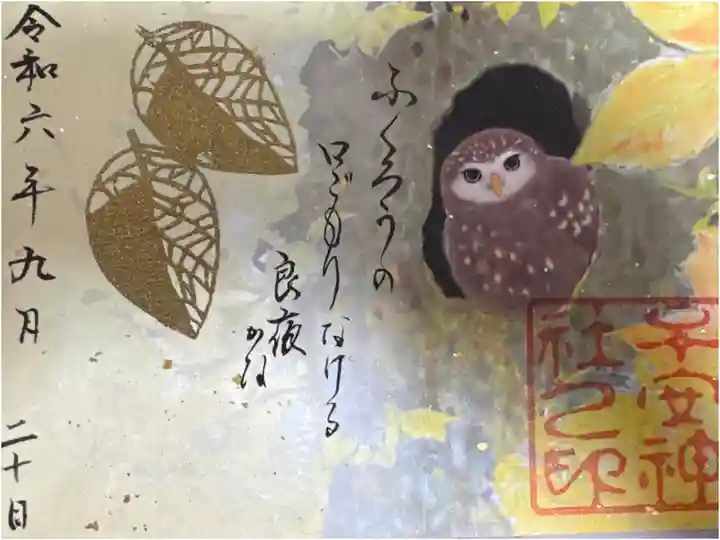 ふくろうの
口ごもりなける
良夜
かな
子安神
社之印
令和六年九月
二十日